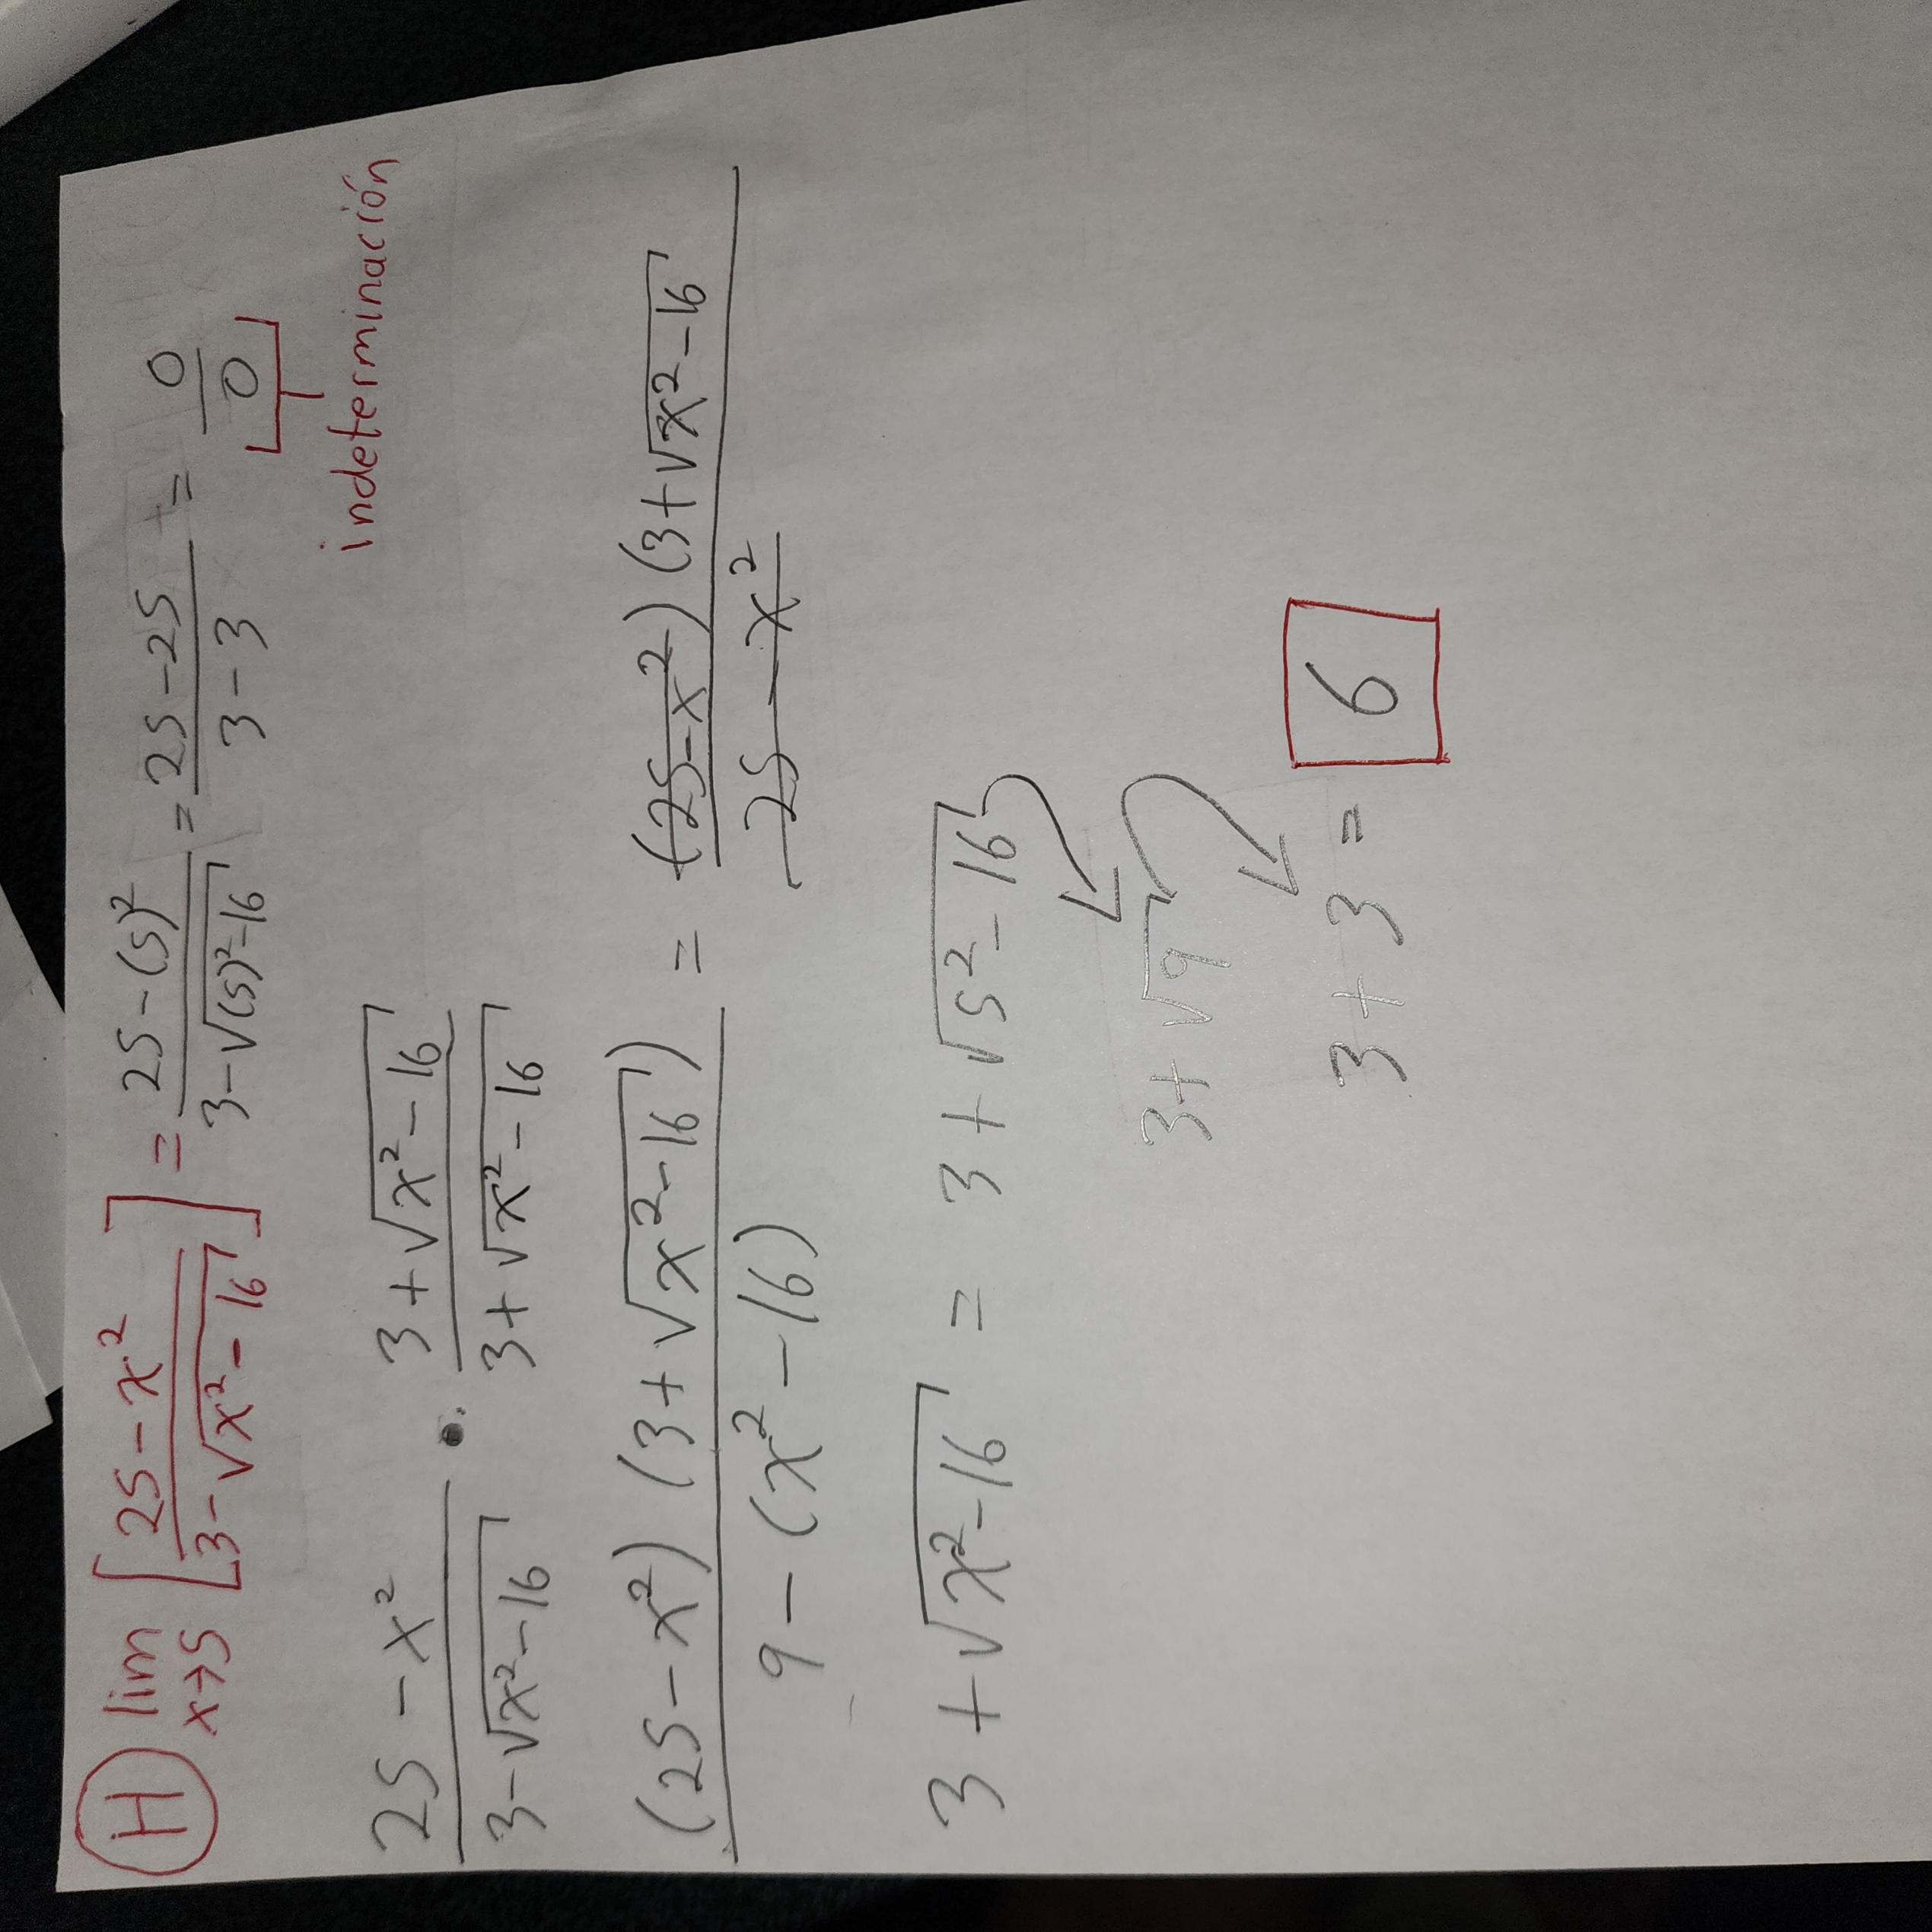 H lim x→5 [ (25 - x²) / (3 - √(x² - 16)) ] = (25 - (5)²) / (3 - √((5)² - 16)) = (25 - 25) / (3 - 3) = 0 / 0
indeterminación
(25 - x²) / (3 - √(x² - 16)) · (3 + √(x² - 16)) / (3 + √(x² - 16))
(25 - x²) (3 + √(x² - 16)) / (9 - (x² - 16)) = (25 - x²) (3 + √(x² - 16) / (25 - x²)
3 + √(x² - 16) = 3 + √(5² - 16)
3 + √9
3 + 3 = 6